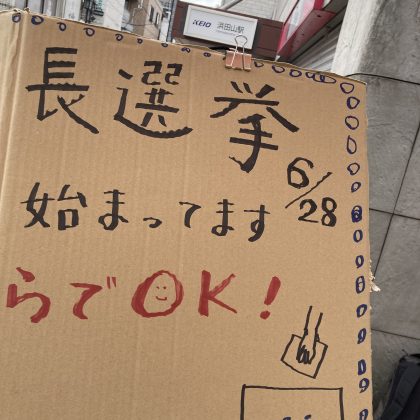 KEIO 浜田山駅
長選挙
6/28
始まってます
らでOK!